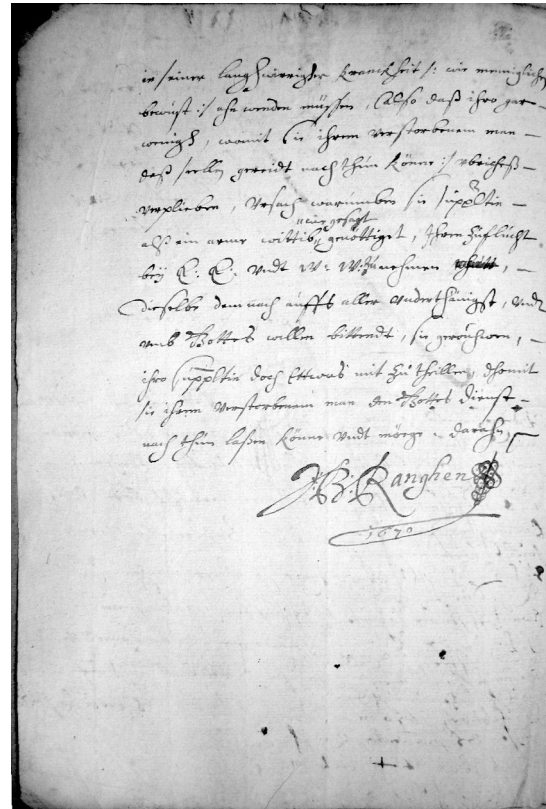 in seiner langhwirrigher Kranckheit /: wie menniglichen
bewust :/ ahn wenden müssen, Also daß ihro gar
wenigh, womit sie ihrem verstorbenem man
daß seellen gereidt nach thun könne :/
verplieben, Ursach warumben sie supp̃ltin
alß ein arme wittib wie gesagt genöttiget, Ihren Zuflucht
beÿ E: E: undt W: W: zu nehmen,
Dieselbe dem nach auffs aller underthänigst, undt
umb Gottes willen bittendt, sie geruhwen,
ihro supp̃ltin doch Ettwas mit zu theillen, dhomit
sie ihrem verstorbenem man den Gottes dienst
nach thun laßen könne undt möge. darahn
J: B: Ranghen
1670